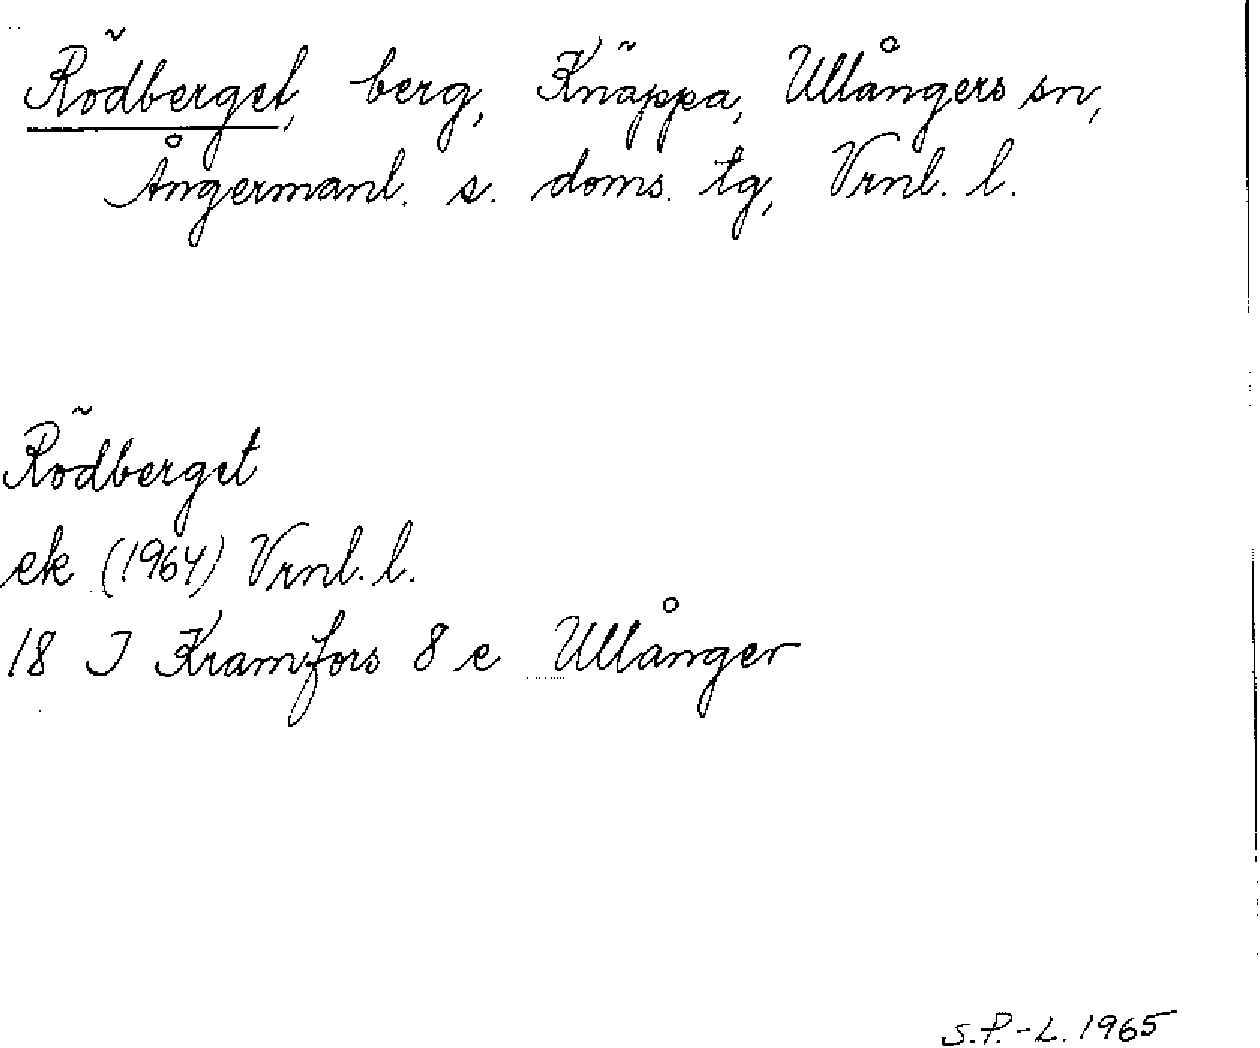 Rödberget, berg, Knäppa, Ullångers sn,
Ångermanl. s. doms. tg, Vrnl. l.
Rödberget
ek (1964) Vrnl. l.
18 J Kramfors 8 e Ullånger
S.P.-L. 1965